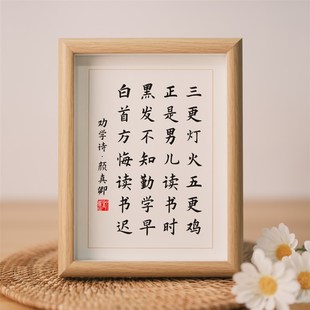 三更灯火五更鸡
正是男儿读书时
黑发不知勤学早
白首方悔读书迟
劝学诗·颜真卿